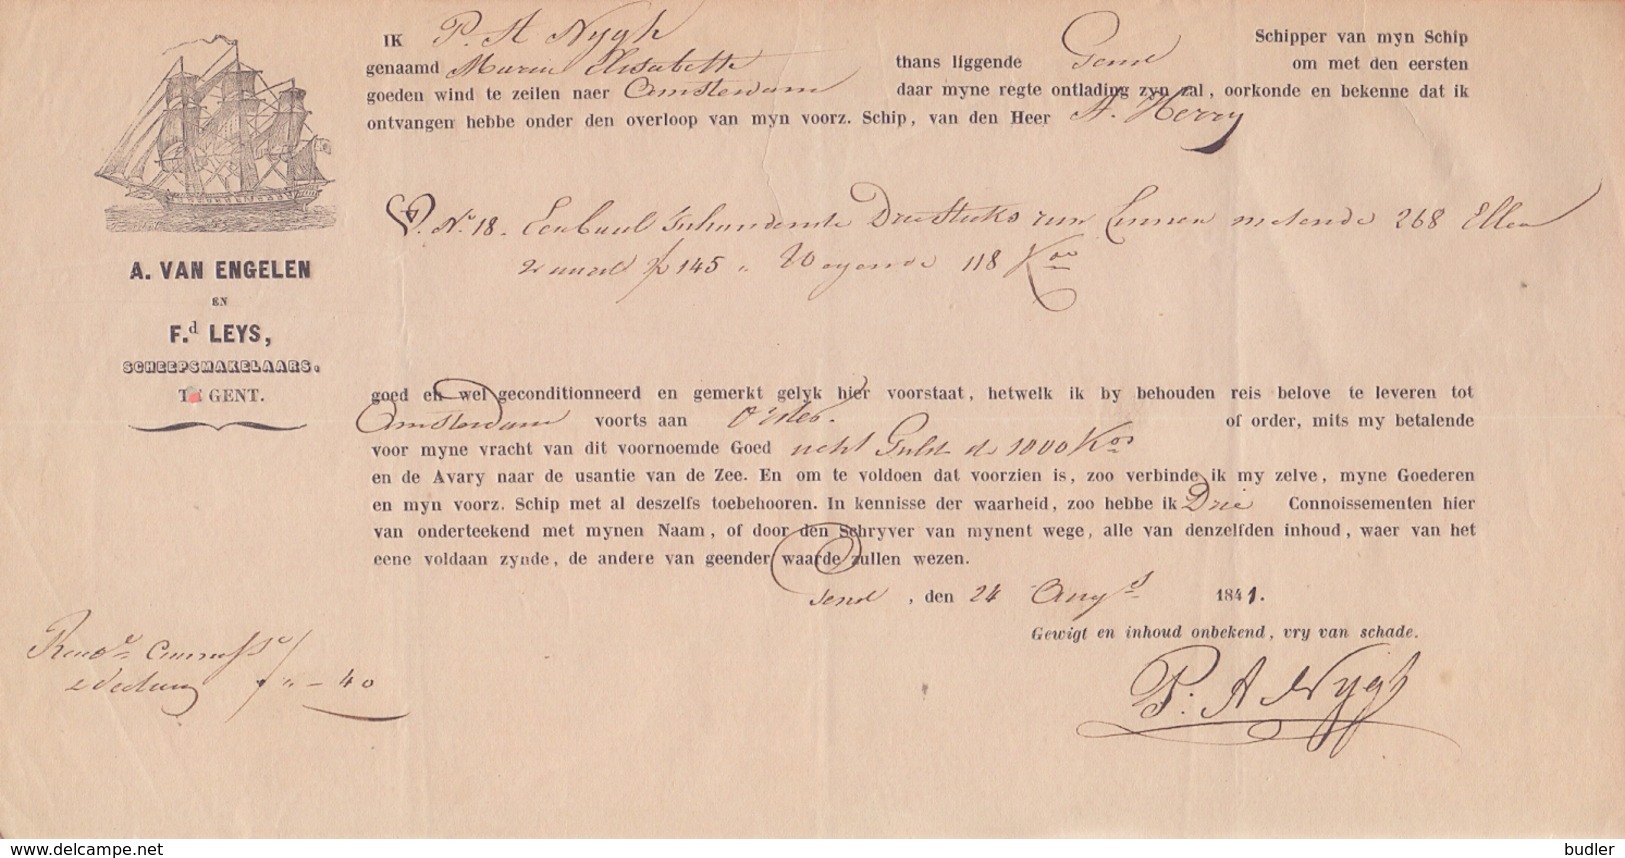 IK P. A Nygh Schipper van myn Schip
genaamd Maria Elisabeth thans liggende Gend om met den eersten
goeden wind te zeilen naer Amsterdam daar myne regte ontlading zyn zal, oorkonde en bekenne dat ik
ontvangen hebbe onder den overloop van myn voorz. Schip, van den Heer A. Herry
N.º 18. Een baal Inhoudende Drie Stuks Linnen metende 268 Ellen
145 Wegende 118 Kos
A. VAN ENGELEN
EN
F.d LEYS,
SCHEEPSMAKELAARS.
TE GENT.
goed en wel geconditionneerd en gemerkt gelyk hier voorstaat, hetwelk ik by behouden reis belove te leveren tot
Amsterdam voorts aan Order. of order, mits my betalende
voor myne vracht van dit voornoemde Goed acht Guld de 1000 Kos
en de Avary naar de usantie van de Zee. En om te voldoen dat voorzien is, zoo verbinde ik my zelve, myne Goederen
en myn voorz. Schip met al deszelfs toebehooren. In kennisse der waarheid, zoo hebbe ik Drie Connoissementen hier
van onderteekend met mynen Naam, of door den Schryver van mynent wege, alle van denzelfden inhoud, waer van het
eene voldaan zynde, de andere van geender waarde zullen wezen.
Gend, den 24 Augt 1841.
Gewigt en inhoud onbekend, vry van schade.
P. A Nygh
40
www.delcampe.net
budler